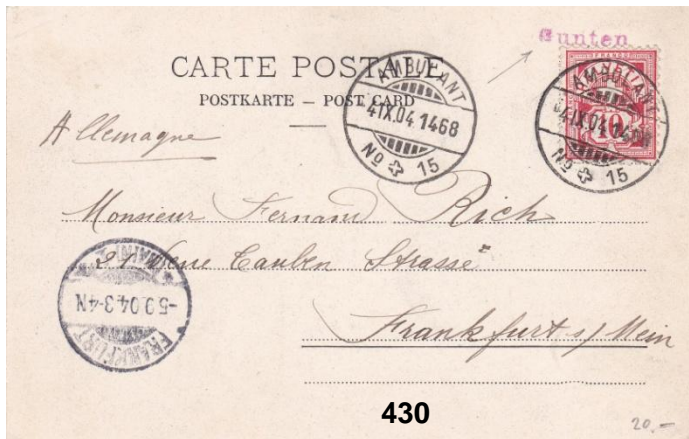 Gunten
CARTE POSTALE
POSTKARTE – POST CARD
AMBULANT
4 IX.04.1468
No 15
AMBULANT
4 IX.04.14
No 15
FRANCO
10
Allemagne
Monsieur Fernand Rich
21 Neue Tauben Strasse
Frankfurt s/ Mein
FRANKFURT
-5.9.04.3-4N
(MAIN)
430
20.-